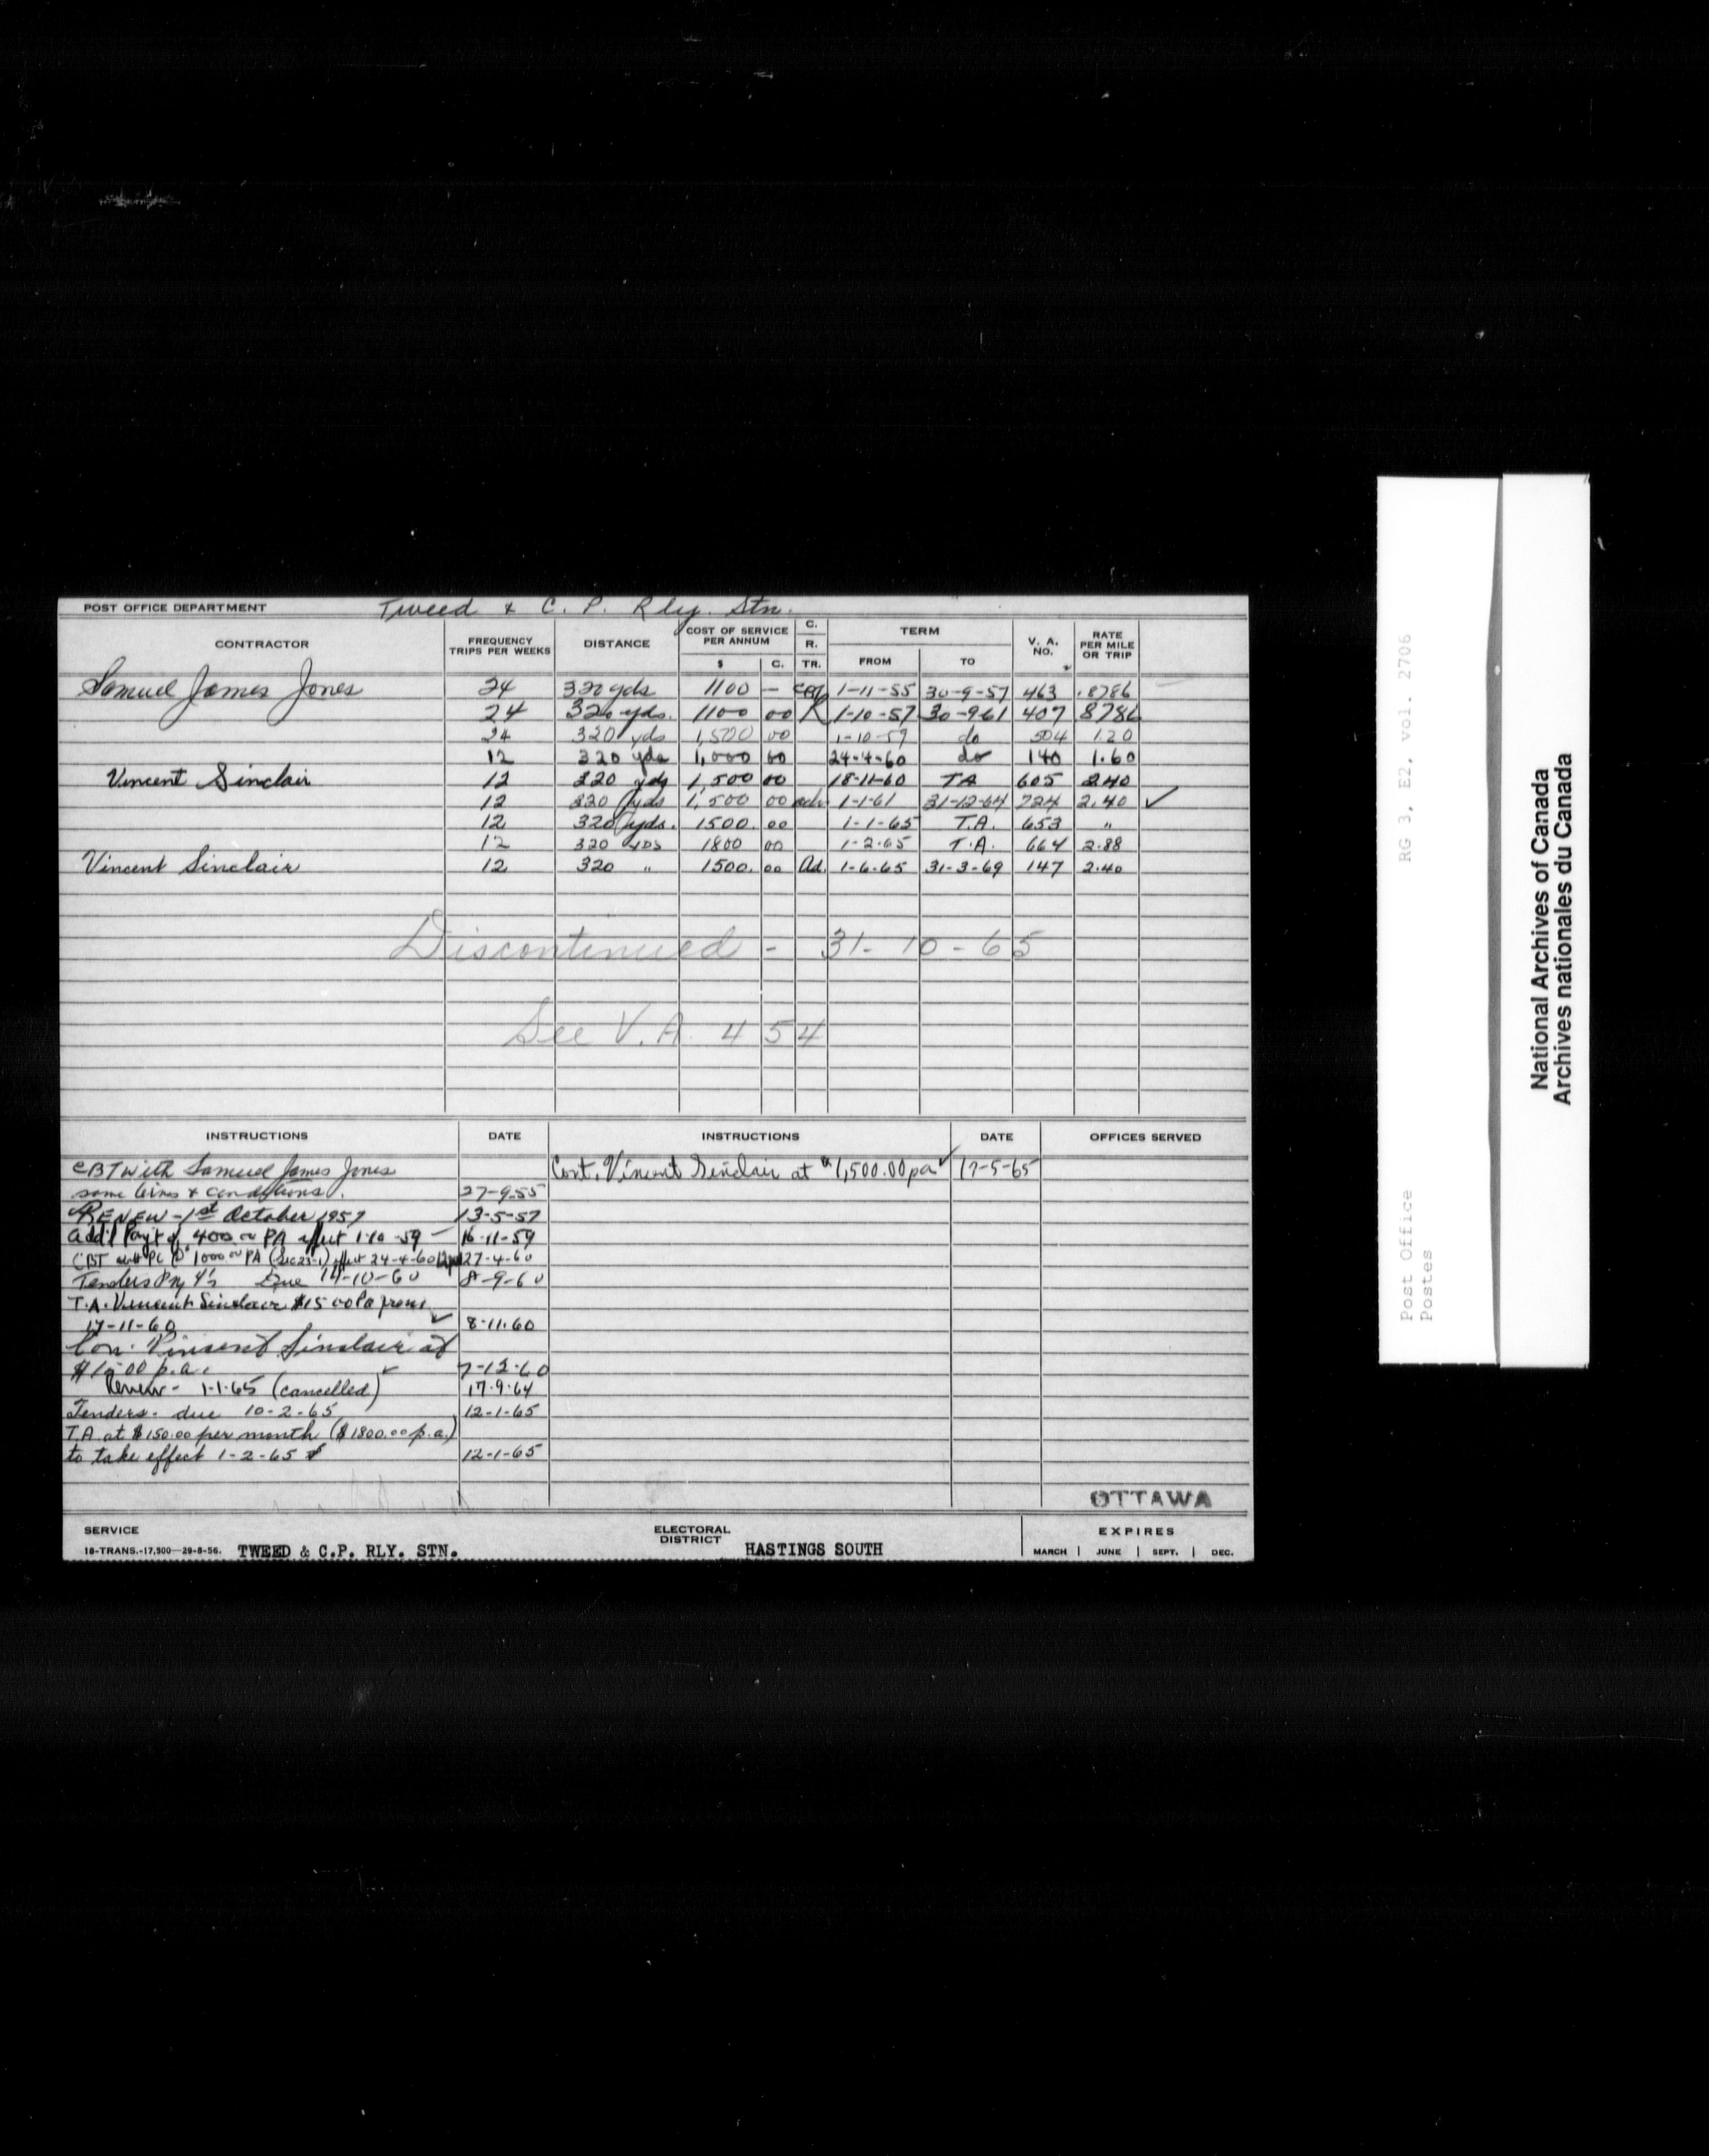 POST OFFICE DEPARTMENT Tweed & C. P. Rly. Stn.
CONTRACTOR FREQUENCY TRIPS PER WEEKS DISTANCE COST OF SERVICE PER ANNUM $ C. C. R. TR. TERM FROM TO V. A. NO. RATE PER MILE OR TRIP
Samuel James Jones 24 320 yds 1100 — 1-11-55 30-9-57 463 .8786
24 320 yds. 1100 00 R 1-10-57 30-9-61 407 8786
24 320 yds 1,500 00 1-10-59 do 504 1.20
12 320 yds 1,000 00 24-4-60 do 140 1.60
Vincent Sinclair 12 320 yds 1,500 00 18-11-60 TA 605 2.40
12 320 yds 1,500 00 1-1-61 31-12-64 724 2.40 ✓
12 320 yds. 1500. 00 1-1-65 T.A. 653 "
12 320 YDS 1800 00 1-2-65 T.A. 664 2.88
Vincent Sinclair 12 320 " 1500. 00 Ad. 1-6-65 31-3-69 147 2.40
Discontinued - 31-10-65
See V.A. 454
INSTRUCTIONS DATE INSTRUCTIONS DATE OFFICES SERVED
CBT with Samuel James Jones Cont. Vincent Sinclair at $1,500.00 pa ✓ 17-5-65
same terms & conditions. 27-9-55
RENEW - 1st October 1957 13-5-57
Add'l Pay't of 400 PA effect 1-10-59 — 16-11-59
CBT PC @ 1000 PA (Sec 23-1) effect 24-4-60 27-4-60
Tenders Due 14-10-60 8-9-60
T.A. Vincent Sinclair $1500 Pa from
17-11-60 ✓ 8-11-60
Con. Vincent Sinclair at
$1500 p.a. ✓ 7-12-60
Renew - 1-1-65 (cancelled) 17-9-64
Tenders - due 10-2-65 12-1-65
T.A. at $150.00 per month ($1800.00 p.a.)
to take effect 1-2-65 12-1-65
OTTAWA
SERVICE ELECTORAL DISTRICT EXPIRES
18-TRANS.-17,500—29-8-56. TWEED & C.P. RLY. STN. HASTINGS SOUTH MARCH | JUNE | SEPT. | DEC.
RG 3, E2, vol. 2706
Post Office
Postes
National Archives of Canada
Archives nationales du Canada